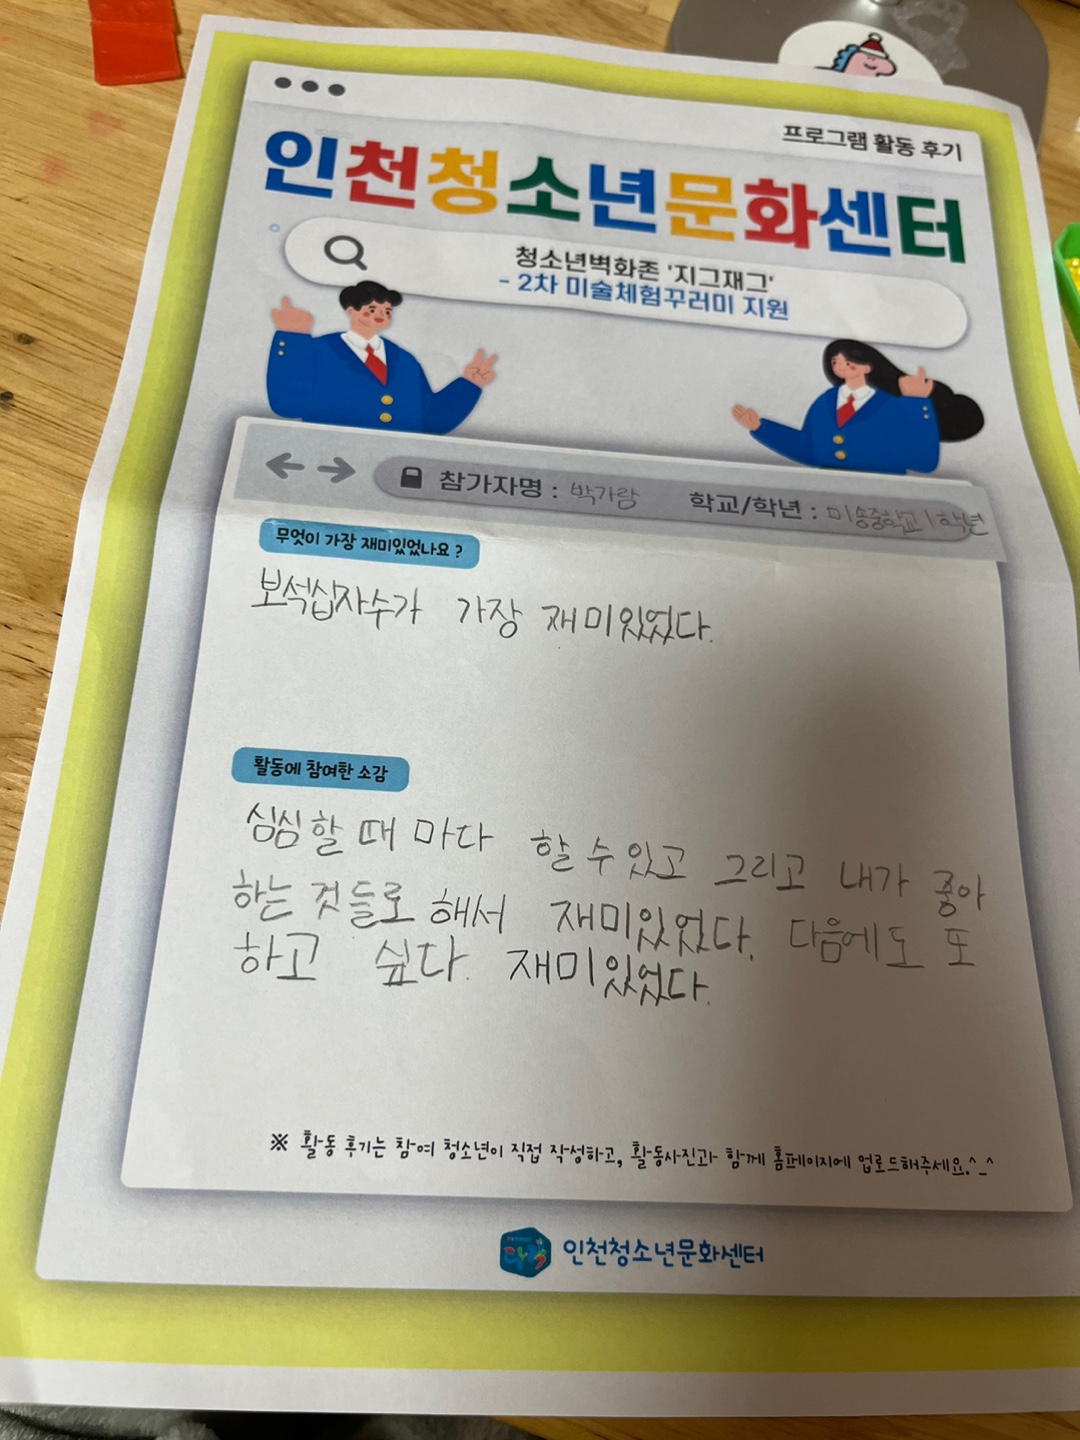 프로그램 활동 후기
인천청소년문화센터
청소년벽화존 '지그재그'
- 2차 미술체험꾸러미 지원
참가자명 : 박가람 학교/학년 : 미송중학교 1학년
무엇이 가장 재미있었나요 ?
보석십자수가 가장 재미있었다.
활동에 참여한 소감
심심할 때 마다 할 수 있고 그리고 내가 좋아
하는 것들로 해서 재미있었다. 다음에도 또
하고 싶다. 재미있었다.
※ 활동 후기는 참여 청소년이 직접 작성하고, 활동사진과 함께 홈페이지에 업로드해주세요.^_^
인천청소년문화센터